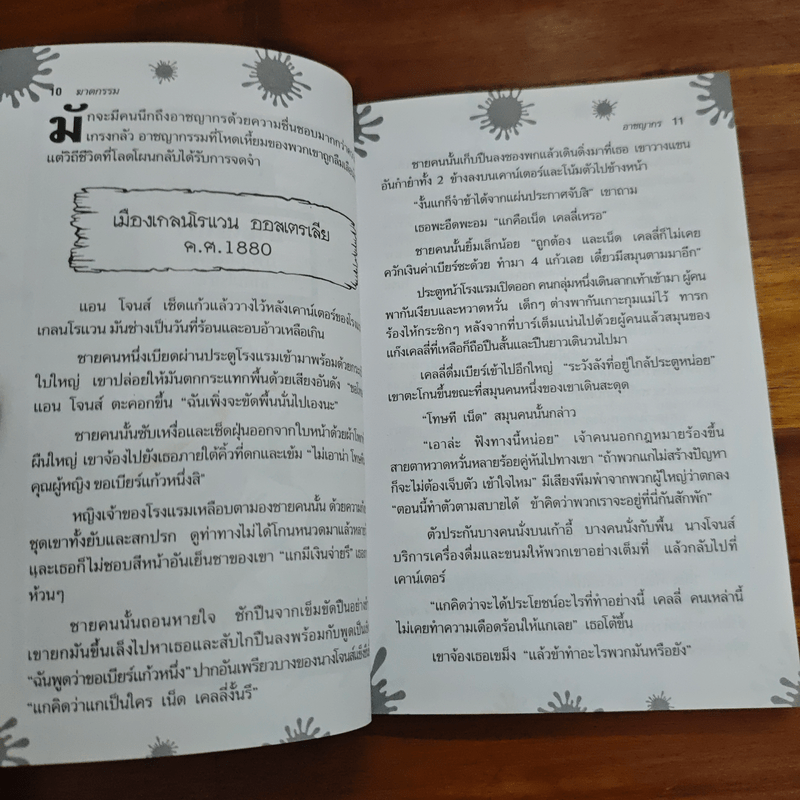 10 ฆาตกรรม
มักจะมีคนนึกถึงอาชญากรด้วยความชื่นชอบมากกว่า
เกรงกลัว อาชญากรรมที่โหดเหี้ยมของพวกเขาถูกลืมเลือน
แต่วิถีชีวิตที่โลดโผนกลับได้รับการจดจำ
เมืองเกลนโรแวน ออสเตรเลีย
ค.ศ.1880
แอน โจนส์ เช็ดแก้วแล้ววางไว้หลังเคาน์เตอร์ของโรงแรม
เกลนโรแวน มันช่างเป็นวันที่ร้อนและอบอ้าวเหลือเกิน
ชายคนหนึ่งเบียดผ่านประตูโรงแรมเข้ามาพร้อมด้วย
ใบใหญ่ เขาปล่อยให้มันตกกระแทกพื้นด้วยเสียงอันดัง
แอน โจนส์ ตะคอกขึ้น “ฉันเพิ่งจะขัดพื้นนั่นไปเองนะ”
ชายคนนั้นซับเหงื่อและเช็ดฝุ่นออกจากใบหน้าด้วย
ผืนใหญ่ เขาจ้องไปยังเธอภายใต้คิ้วที่ดกและเข้ม “ไม่เอาน่า
คุณผู้หญิง ขอเบียร์แก้วหนึ่งสิ”
หญิงเจ้าของโรงแรมเหลือบตามองชายคนนั้น ด้วย
ชุดเขาทั้งยับและสกปรก ดูท่าทางไม่ได้โกนหนวดมาแล้ว
และเธอก็ไม่ชอบสีหน้าอันเย็นชาของเขา “แกมีเงินจ่ายรึ”
ห้วนๆ
ชายคนนั้นถอนหายใจ ชักปืนจากเข็มขัดปืนอย่าง
เขายกมันขึ้นเล็งไปหาเธอและสับไกปืนลงพร้อมกับพูด
“ฉันพูดว่าขอเบียร์แก้วหนึ่ง” ปากอันเพรียวบางของนางโจนส์
“แกคิดว่าแกเป็นใคร เน็ด เคลลี่งั้นรึ”
อาชญากร 11
ชายคนนั้นเก็บปืนลงซองพกแล้วเดินดิ่งมาที่เธอ เขาวางแขน
อันกำยำทั้ง 2 ข้างลงบนเคาน์เตอร์และโน้มตัวไปข้างหน้า
“งั้นแกก็จำข้าได้จากแผ่นประกาศจับสิ” เขาถาม
เธอพะอืดพะอม “แกคือเน็ด เคลลี่เหรอ”
ชายคนนั้นยิ้มเล็กน้อย “ถูกต้อง และเน็ด เคลลี่ก็ไม่เคย
ควักเงินค่าเบียร์ซะด้วย ทำมา 4 แก้วเลย เดี๋ยวมีสมุนตามมาอีก”
ประตูหน้าโรงแรมเปิดออก คนกลุ่มหนึ่งเดินลากเท้าเข้ามา ผู้คน
พากันเงียบและหวาดหวั่น เด็กๆ ต่างพากันเกาะกุมแม่ไว้ ทารก
ร้องไห้กระซิกๆ หลังจากที่บาร์เต็มแน่นไปด้วยผู้คนแล้วสมุนของ
แก๊งเคลลี่ที่เหลือก็ถือปืนสั้นและปืนยาวเดินวนไปมา
เคลลี่ดื่มเบียร์เข้าไปอีกใหญ่ “ระวังลังที่อยู่ใกล้ประตูหน่อย”
เขาตะโกนขึ้นขณะที่สมุนคนหนึ่งของเขาเดินสะดุด
“โทษที เน็ด” สมุนคนนั้นกล่าว
“เอาล่ะ ฟังทางนี้หน่อย” เจ้าคนนอกกฎหมายร้องขึ้น
สายตาหวาดหวั่นหลายร้อยคู่หันไปทางเขา “ถ้าพวกแกไม่สร้างปัญหา
ก็จะไม่ต้องเจ็บตัว เข้าใจไหม” มีเสียงพึมพำจากพวกผู้ใหญ่ว่าตกลง
“ตอนนี้ทำตัวตามสบายได้ ข้าคิดว่าพวกเราจะอยู่ที่นี่กันสักพัก”
ตัวประกันบางคนนั่งบนเก้าอี้ บางคนนั่งกับพื้น นางโจนส์
บริการเครื่องดื่มและขนมให้พวกเขาอย่างเต็มที่ แล้วกลับไปที่
เคาน์เตอร์
“แกคิดว่าจะได้ประโยชน์อะไรที่ทำอย่างนี้ เคลลี่ คนเหล่านี้
ไม่เคยทำความเดือดร้อนให้แกเลย” เธอโต้ขึ้น
เขาจ้องเธอเขม็ง “แล้วข้าทำอะไรพวกมันหรือยัง”